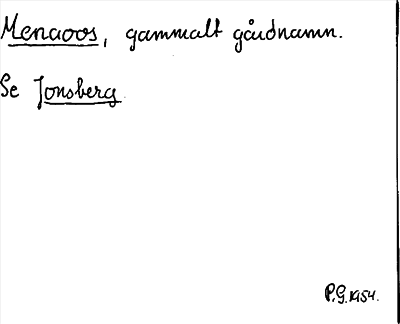 Menaoos, gammalt gårdnamn.
Se Jonsberg
P.G. 1954.